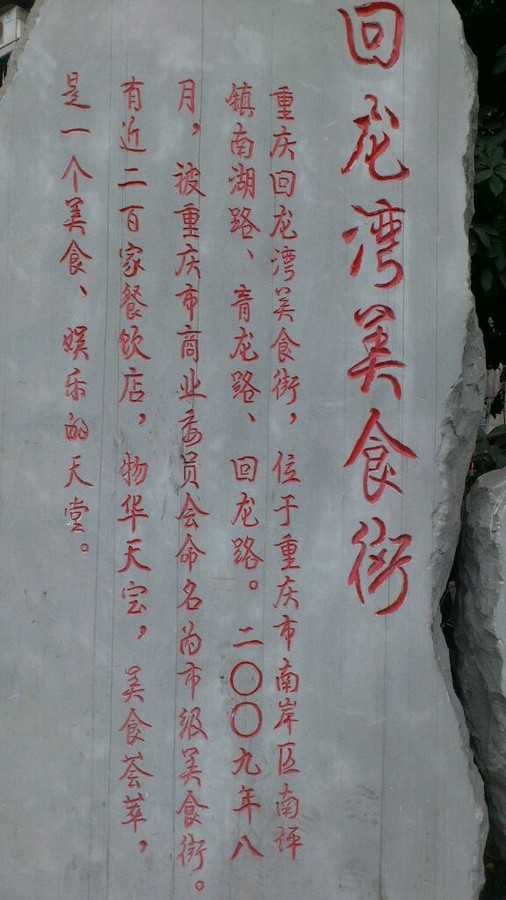 回龙湾美食街
重庆回龙湾美食街，位于重庆市南岸区南坪
镇南湖路、青龙路、回龙路。二〇〇九年八
月，被重庆市商业委员会命名为市级美食街。
有近二百家餐饮店，物华天宝，美食荟萃，
是一个美食、娱乐的天堂。